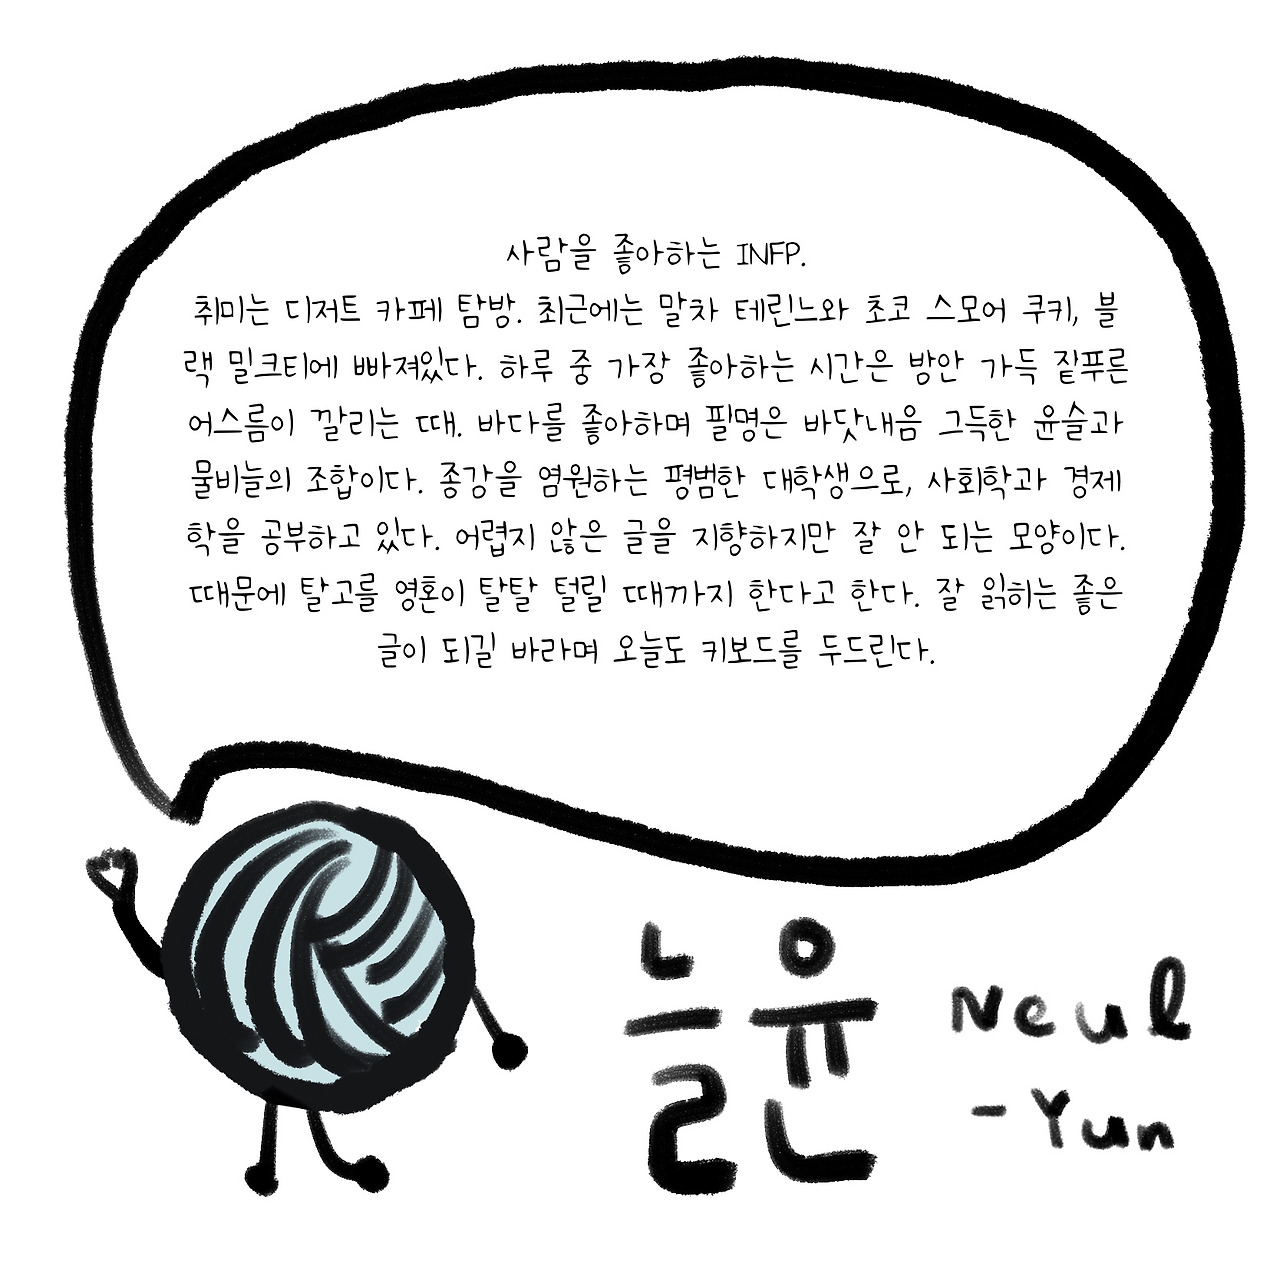 사람을 좋아하는 INFP.
취미는 디저트 카페 탐방. 최근에는 말차 테린느와 초코 스모어 쿠키, 블
랙 밀크티에 빠져있다. 하루 중 가장 좋아하는 시간은 방안 가득 짙푸른
어스름이 깔리는 때. 바다를 좋아하며 필명은 바닷내음 그득한 윤슬과
물비늘의 조합이다. 종강을 염원하는 평범한 대학생으로, 사회학과 경제
학을 공부하고 있다. 어렵지 않은 글을 지향하지만 잘 안 되는 모양이다.
때문에 탈고를 영혼이 탈탈 털릴 때까지 한다고 한다. 잘 읽히는 좋은
글이 되길 바라며 오늘도 키보드를 두드린다.
늘윤
Neul
-Yun